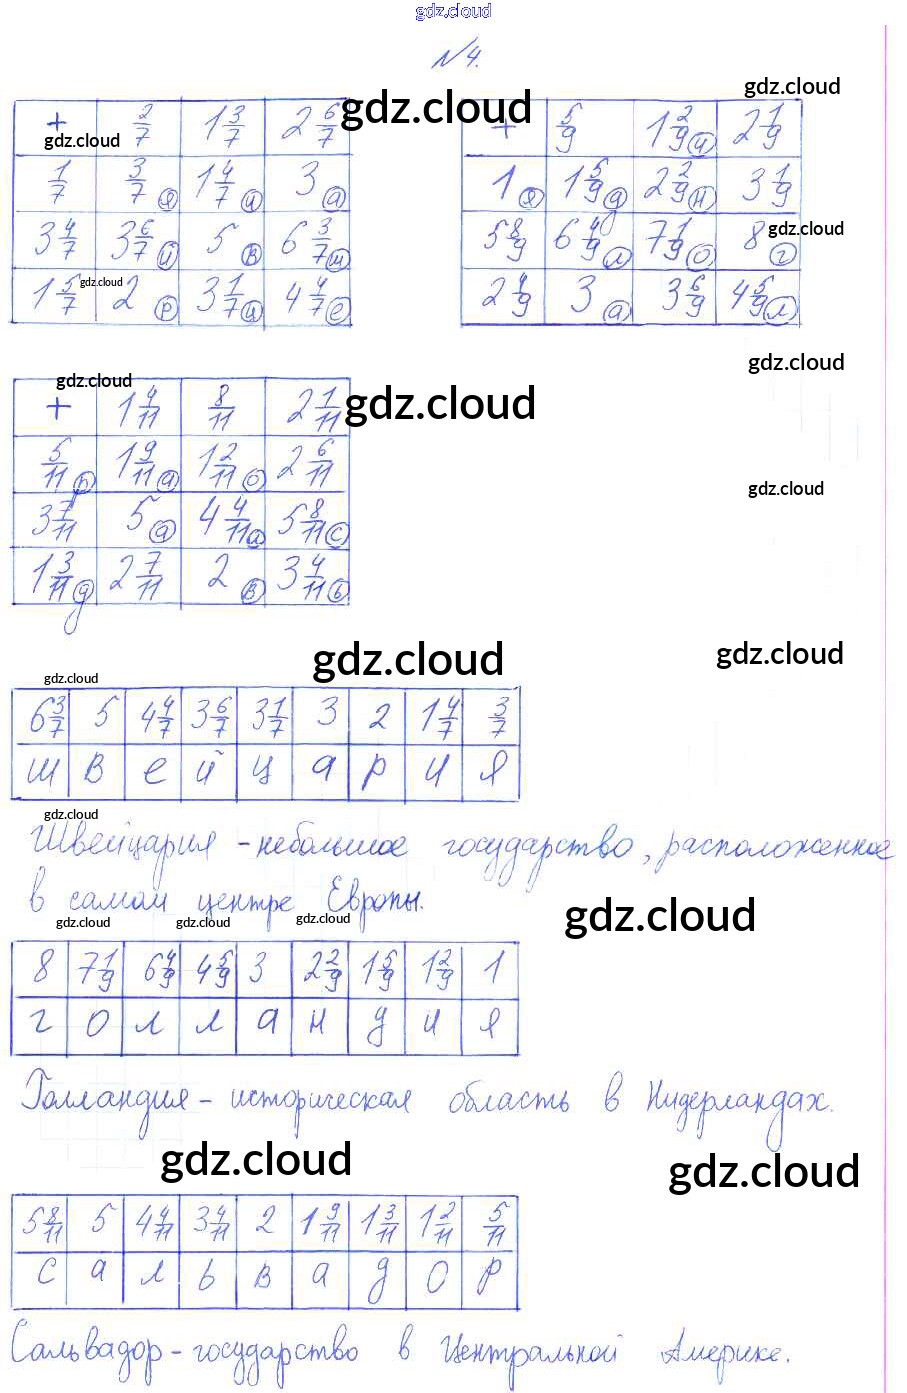 gdz.cloud
№4.
gdz.cloud gdz.cloud
+ 2/7 1 3/7 2 6/7
gdz.cloud
1/7 3/7 я 1 4/7 и 3 а
3 4/7 3 6/7 й 5 в 6 3/7 ш
1 5/7 gdz.cloud 2 р 3 1/7 ц 4 4/7 е
+ 5/9 1 2/9 и 2 1/9
1 я 1 5/9 д 2 2/9 н 3 1/9
gdz.cloud
5 8/9 6 4/9 л 7 1/9 о 8 г
2 4/9 3 а 3 6/9 4 5/9 л
gdz.cloud
gdz.cloud gdz.cloud
+ 1 4/11 8/11 2 1/11
5/11 р 1 9/11 а 1 2/11 о 2 6/11
gdz.cloud
3 7/11 5 а 4 4/11 л 5 8/11 с
1 3/11 д 2 7/11 2 в 3 4/11 ь
gdz.cloud gdz.cloud
gdz.cloud
6 3/7 5 4 4/7 3 6/7 3 1/7 3 2 1 4/7 3/7
ш в е й ц а р и я
gdz.cloud
Швейцария - небольшое государство, расположенное
в самом центре Европы.
gdz.cloud gdz.cloud gdz.cloud gdz.cloud
8 7 1/9 6 4/9 4 5/9 3 2 2/9 1 5/9 1 2/9 1
г о л л а н д и я
Голландия - историческая область в Нидерландах.
gdz.cloud gdz.cloud
5 8/11 5 4 4/11 3 4/11 2 1 9/11 1 3/11 1 2/11 5/11
с а л ь в а д о р
Сальвадор - государство в Центральной Америке.